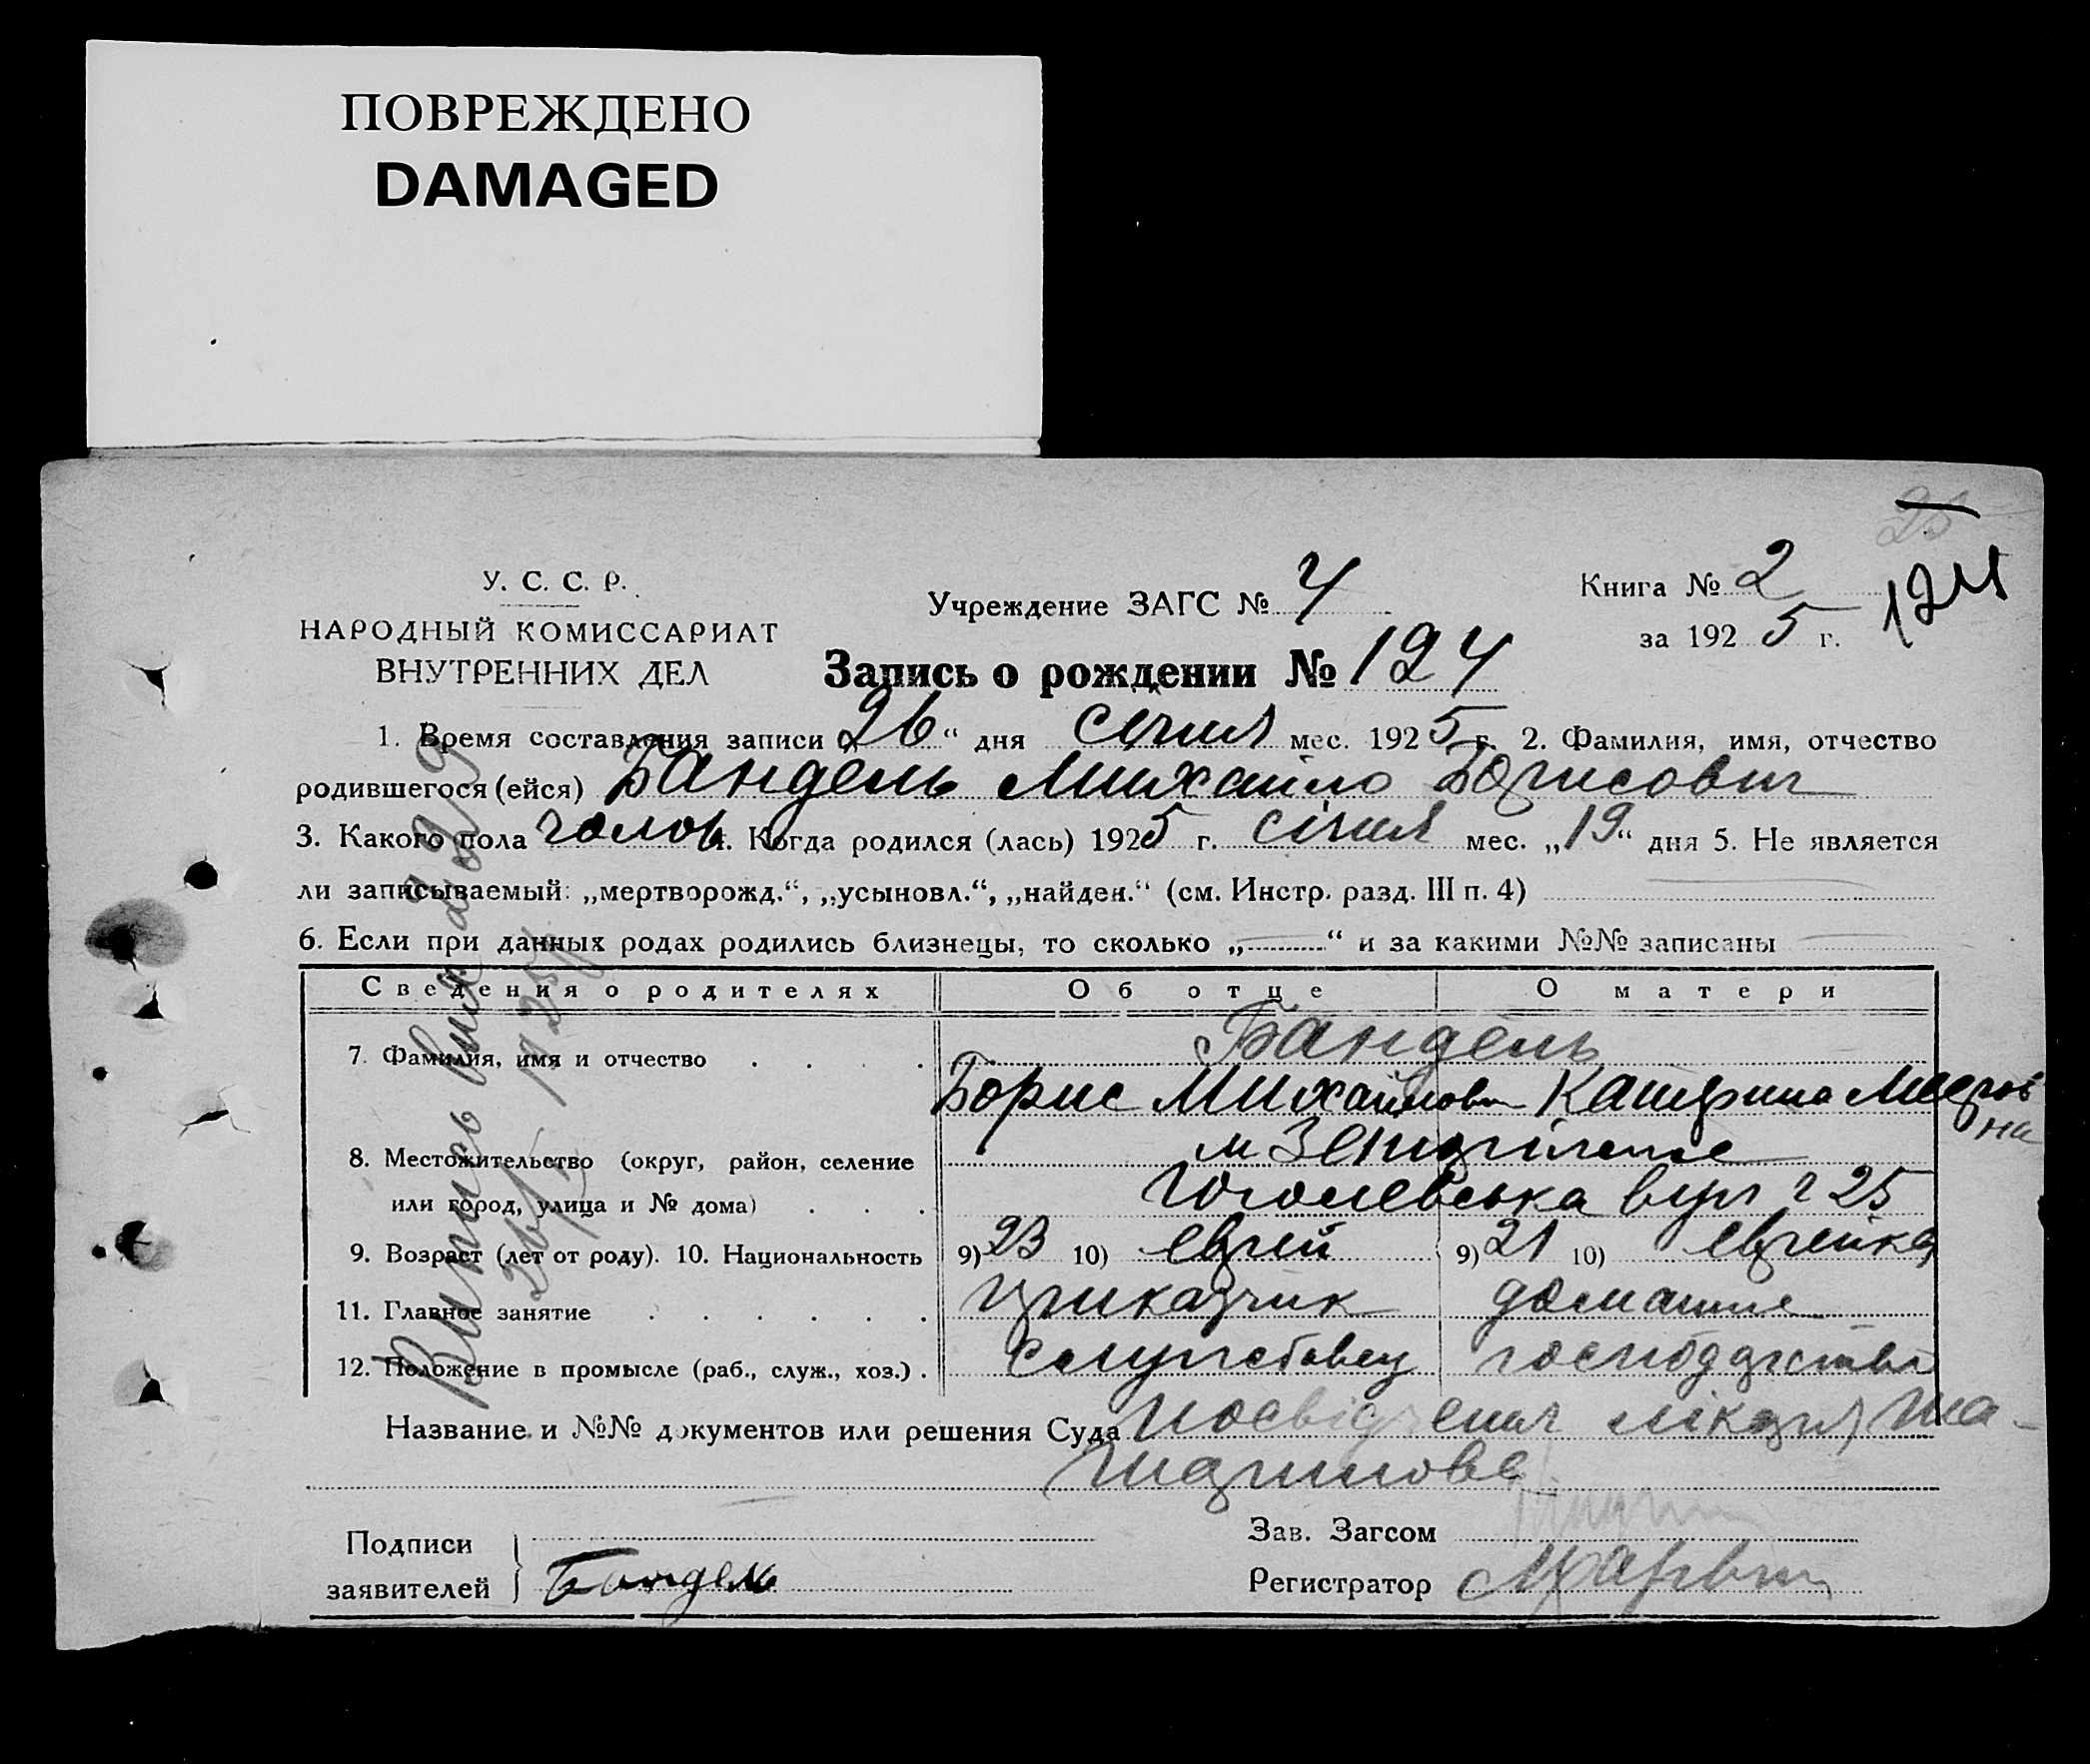 ПОВРЕЖДЕНО
DAMAGED
У. С. С. Р.
НАРОДНЫЙ КОМИССАРИАТ
ВНУТРЕННИХ ДЕЛ
Учреждение ЗАГС № 4
Книга № 2
за 1925 г.
124
Запись о рождении № 124
1. Время составления записи 26 “ дня січня мес. 1925 г. 2. Фамилия, имя, отчество
родившегося (ейся) Бандель Михайло Борисович
3. Какого пола чолов 4. Когда родился (лась) 1925 г. січня мес. „19“ дня 5. Не является
ли записываемый: „мертворожд.“, „усыновл.“, „найден.“ (см. Инстр. разд. III п. 4)
6. Если при данных родах родились близнецы, то сколько „ “ и за какими №№ записаны
Сведения о родителях Об отце О матери
7. Фамилия, имя и отчество Бандель
Борис Михайлович
8. Местожительство (округ, район, селение
или город, улица и № дома) Гоголевська вул ч 25
9. Возраст (лет от роду). 10. Национальность 9) 23 10) еврей 9) 21 10) еврейка
11. Главное занятие приказчик домашнє
12. Положение в промысле (раб., служ., хоз.) службовец господарство
Название и №№ документов или решения Суда посвідчення лікаря
Подписи
заявителей Бандель
Зав. Загсом
Регистратор
Випись видана